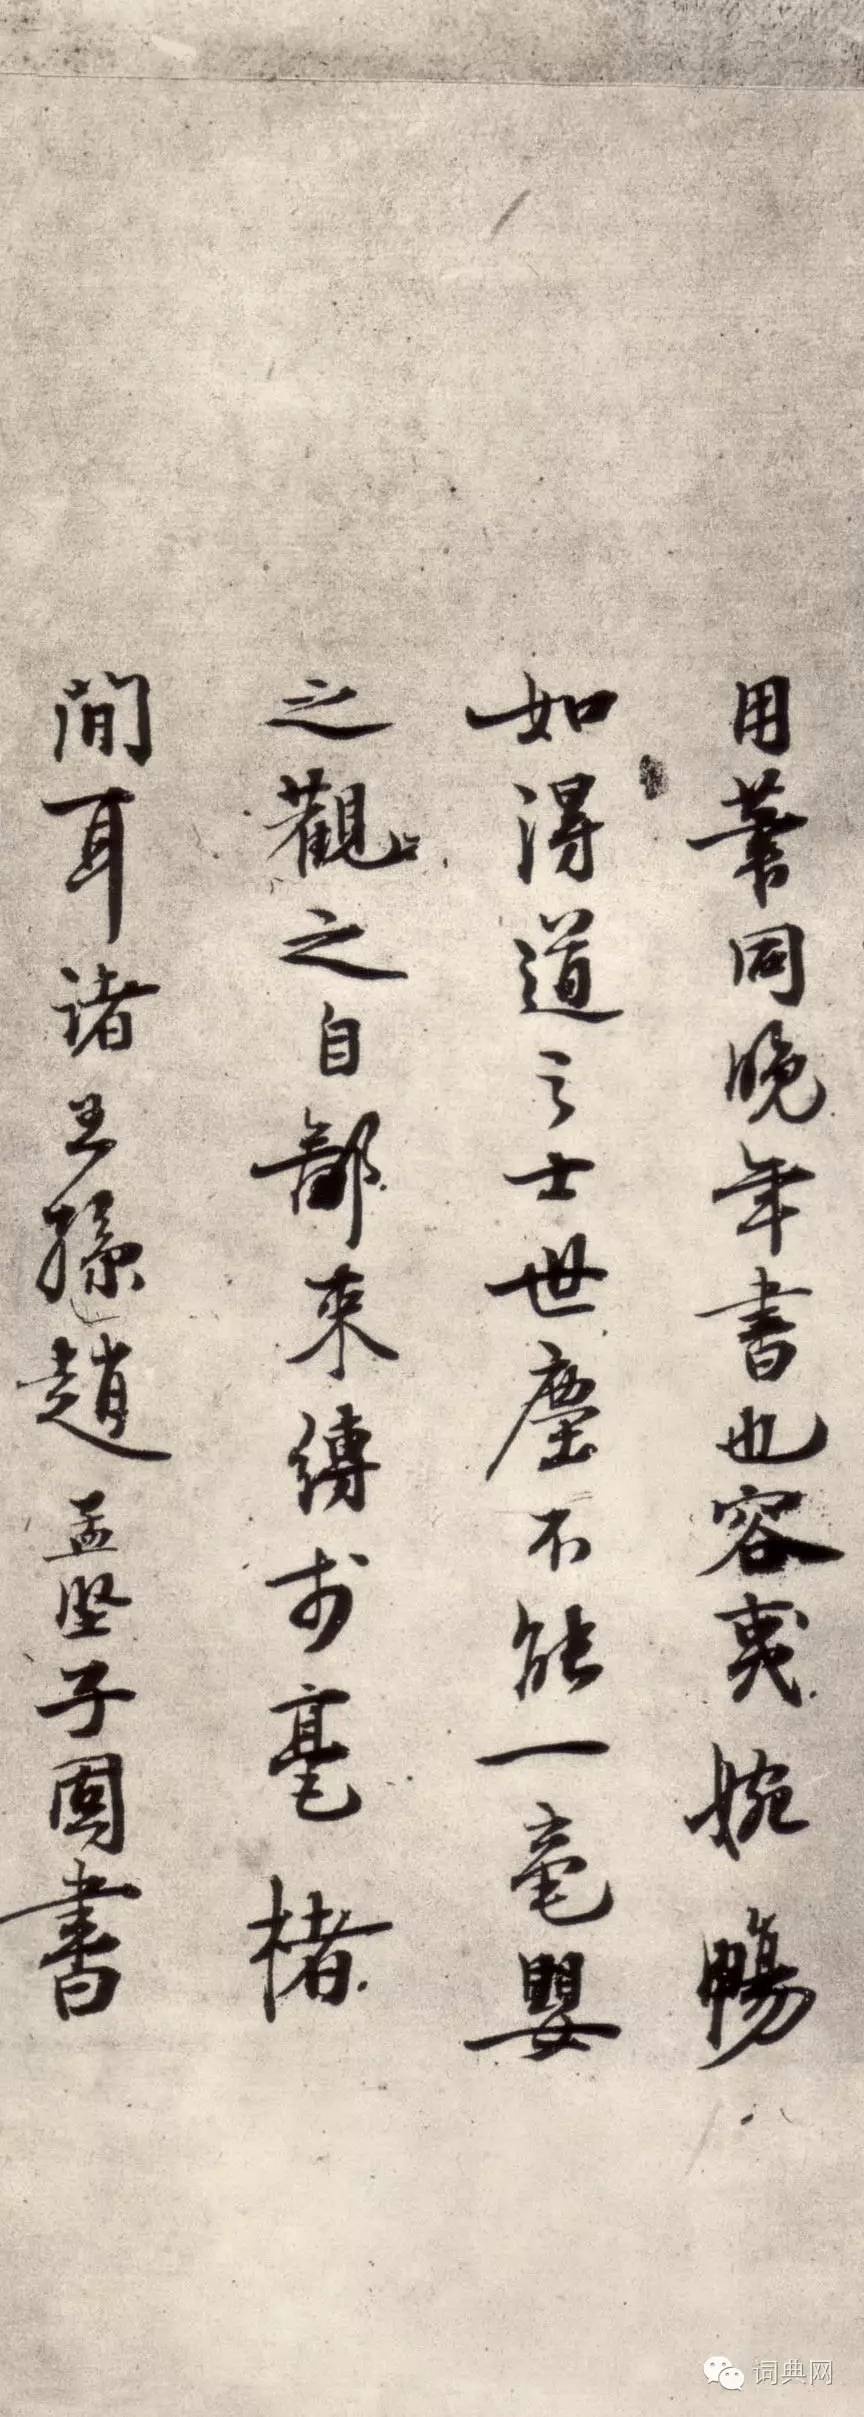 用筆同晚年書也容夷婉暢
如得道之士世塵不能一毫嬰
之觀之自鄙束縛於毫楮
間耳諸王孫趙孟堅子固書
词典网